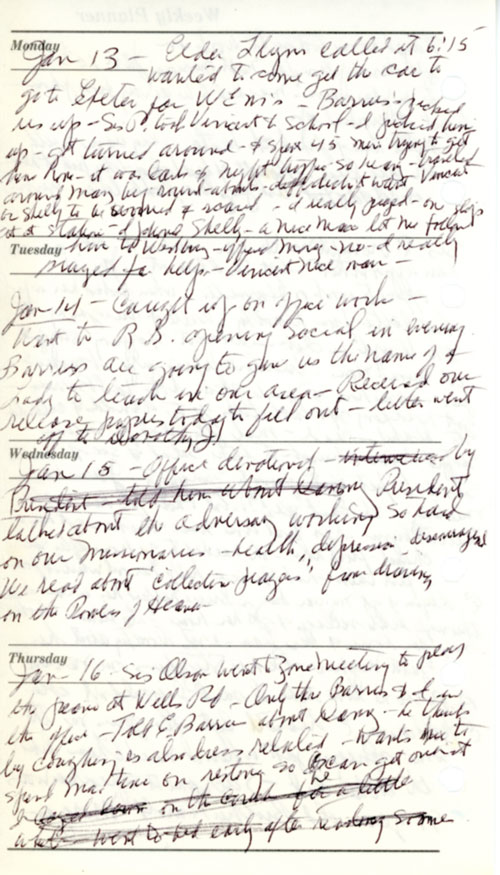 Weekly Planner
Monday
Jan 13 - Elder Flynn called at 6:15
wanted to come get the car to
go to Exeter for W E - Barrus picked
us up - Sis P. took Vincent to School - I picked him
up - got turned around - & spent 45 min trying to get
him home - it was dark & night - traveled
around many big round-abouts - didn't want Vincent
or Shelly to be worried & scared - I really prayed - on
at a station - & Shelly - a nice man let me follow
him to - offered money - no - I really
Tuesday
prayed for help - Vincent nice man -
Jan 14 - Caught up on office work -
Went to R.S. opening Social in evening
Barrus are going to give us the name of a
lady to teach in our area - Received our
release papers today to fill out - letter went
off to Dorothy J.
Wednesday
Jan 15 - Office devotional - by
President told him about President
talked about the adversary working so hard
on our missionaries - health, depression, discouraged
We read about "collective prayers" from drawing
on the Powers of Heaven
Thursday
Jan 16 - Sis Olson went to Zone meeting to play
the piano at Wells Rd - Only the Barrus & I in
the office - Told E. Barrus about - he thinks
by coughing is also stress related - wants me to
spend more time on resting so can get over it
I on the couch for a little
while - went to bed early after reading some